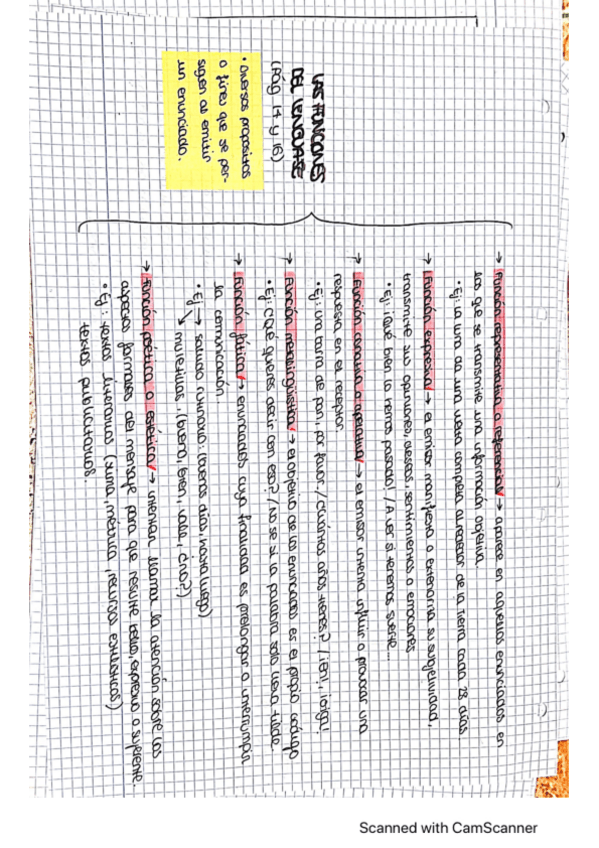 LAS FUNCIONES
DEL LENGUAJE
(Pág 14 y 16)
• Diversos propósitos
o fines que se per-
siguen al emitir
un enunciado.
→ Función representativa o referencial → aparece en aquellos enunciados en
los que se transmite una información objetiva.
• Ej: La luna da una vuelta completa alrededor de la Tierra cada 28 días
→ Función expresiva → el emisor manifiesta o exterioriza su subjetividad,
transmite sus opiniones, deseos, sentimientos o emociones
• Ej: ¡Qué bien lo hemos pasado! / A ver si tenemos suerte...
→ Función conativa o apelativa → el emisor intenta influir o provocar una
respuesta en el receptor.
• Ej: Una barra de pan, por favor. / ¿Cuántos años tienes? / ¡Eh!, ¡oiga!
→ Función metalingüística → el objetivo de los enunciados es el propio código
• Ej: ¿Qué quieres decir con eso? / No se si la palabra solo lleva tilde.
→ Función fática → enunciados cuya finalidad es prolongar o interrumpir
la comunicación
• Ej → saludo rutinario: (buenos días, hasta luego)
↘ muletillas, (bueno, bien, vale, ¿no?)
→ Función poética o estética → intentan llamar la atención sobre los
aspectos formales del mensaje para que resulte bello, expresivo o sugerente.
• Ej: textos literarios (rima, métrica, recursos estilísticos)
textos publicitarios.
Scanned with CamScanner